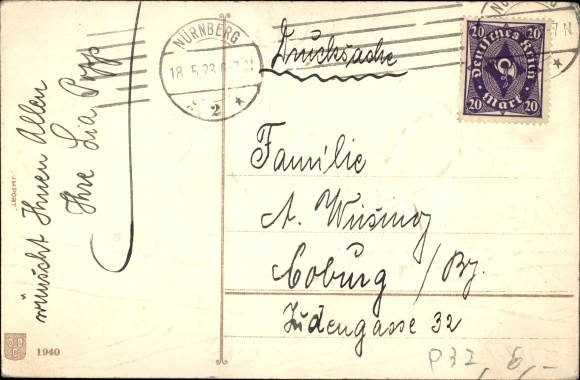 wünscht Ihnen Allen
Ihre Lia Popp
"IMPORT"
1940
NÜRNBERG
18.5.23.6-7N.
* 2 *
Drucksache
7N.
20 20
Deutsches Reich
Mark
20 20
Familie
A. Wüsing
Coburg / By.
Judengasse 32
P32, 6,-